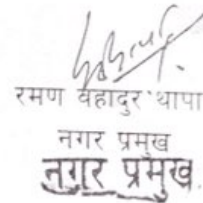 रमण बहादुर थापा
नगर प्रमुख
नगर प्रमुख